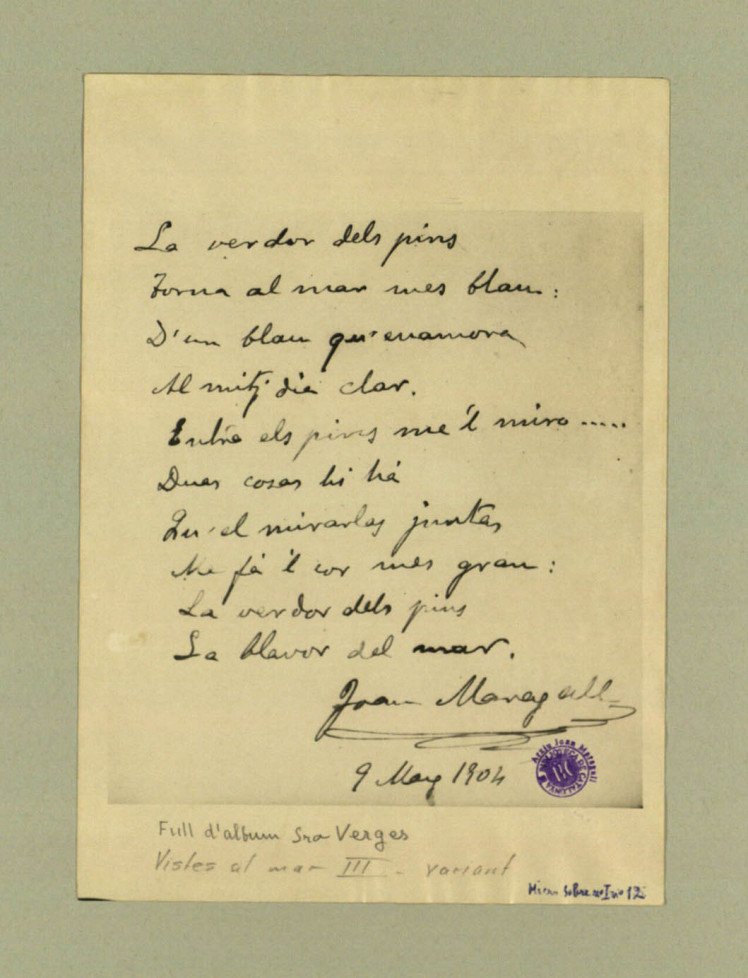 La verdor dels pins
Torna al mar mes blau:
D'un blau qu'enamora
Al mitj dia clar.
Entre els pins me'l miro.....
Duas cosas hi há
Qu'el mirarlas juntas
Me fá 'l cor mes gran:
La verdor dels pins
La blavor del mar.
Joan Maragall
9 Maig 1904
Arxiu Joan Maragall
BIBLIOTECA DE CATALUNYA
BC
Full d'album Sra Verges
Vistes al mar III - variant